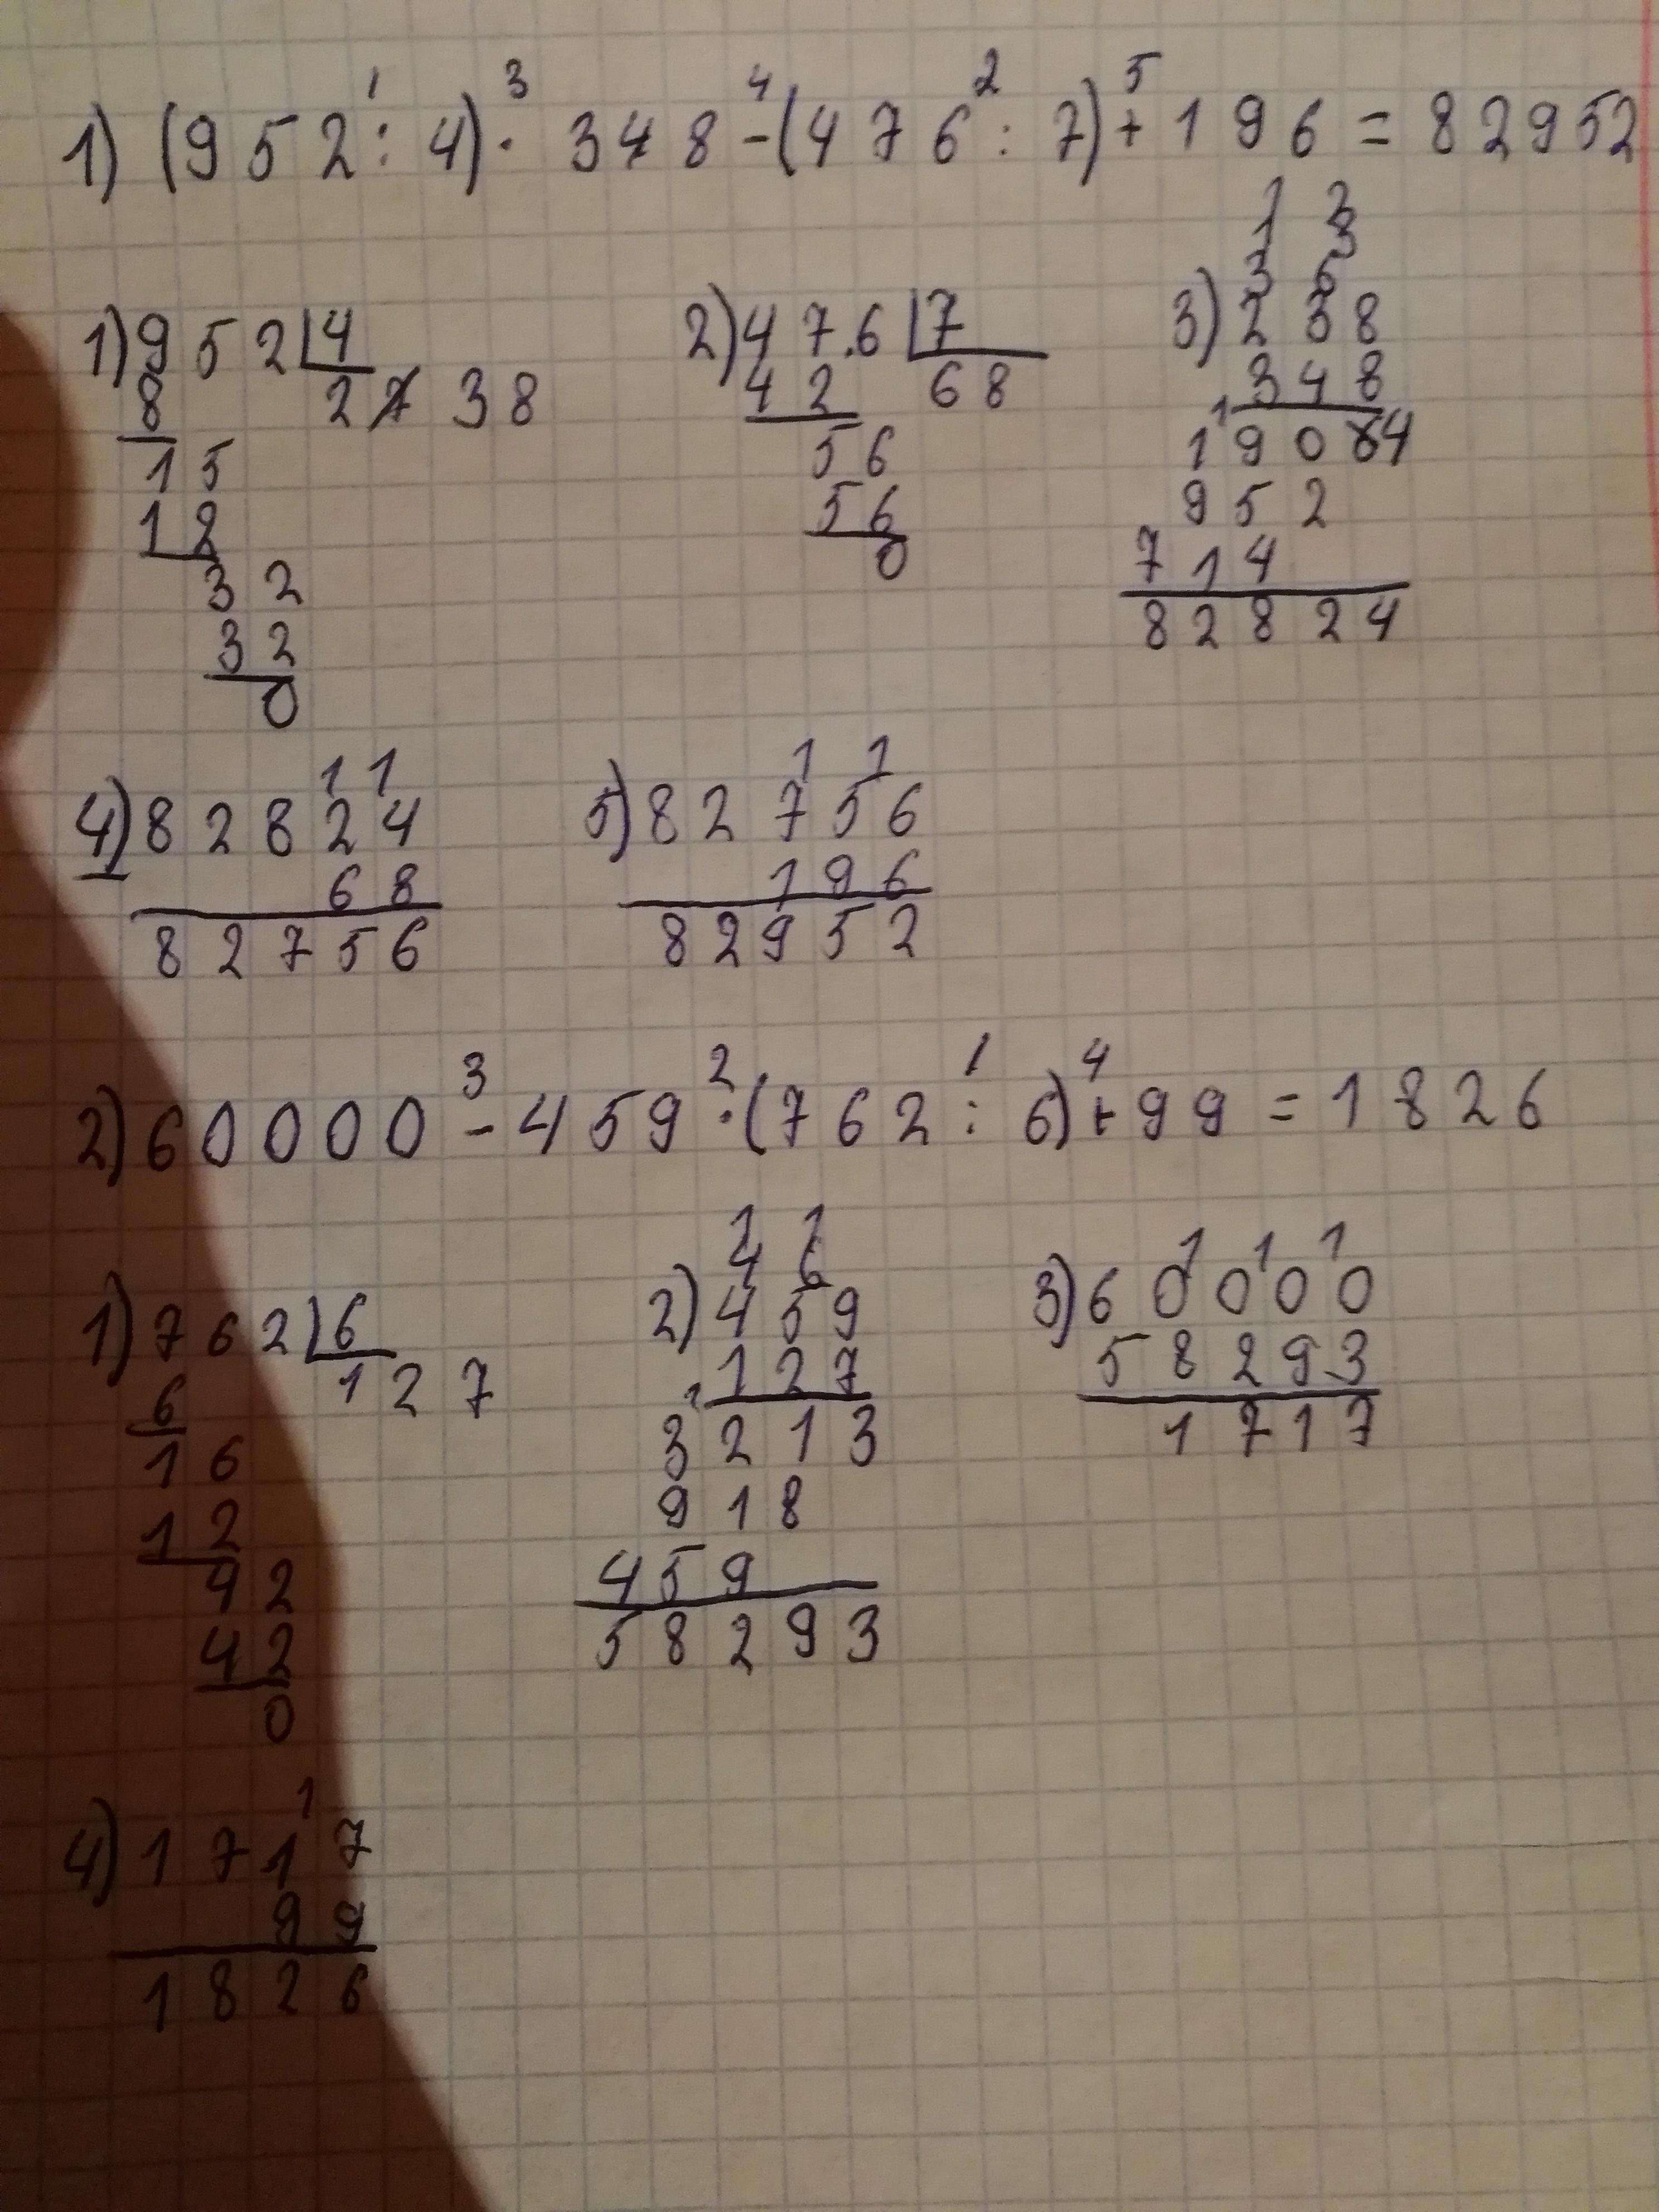 1 3 4 2 5
1) (952 : 4) · 348 - (476 : 7) + 196 = 82952
1) 952 | 4
238
8
15
12
32
32
0
2) 47.6 | 7
68
42
56
56
0
1 3
3 6
3) 238
348
1
19084
952
714
82824
1 1
4) 82824
-
68
82756
1 1
5) 82756
196
82952
3 2 1 4
2) 60000 - 459 · (762 : 6) + 99 = 1826
1) 762 | 6
127
6
16
12
42
42
0
1 1
4 6
2) 459
127
1
3213
918
459
58293
1 1 1
3) 60000
58293
1717
1
4) 1717
99
1826